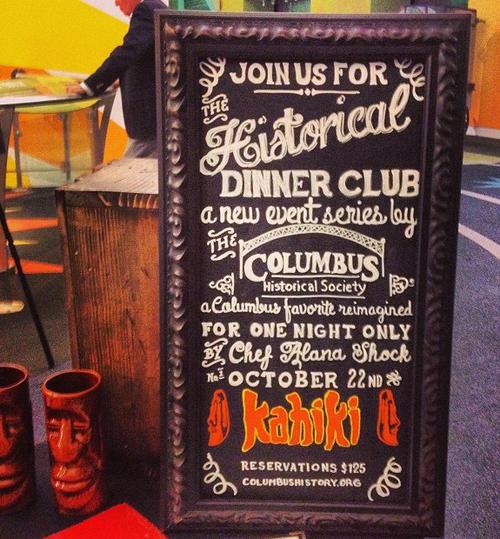 JOIN US FOR
THE
Historical
DINNER CLUB
a new event series by
THE
COLUMBUS
Historical Society
a Columbus favorite reimagined
FOR ONE NIGHT ONLY
BY Chef Alana Shock
No. 1 OCTOBER 22ND
kahiki
RESERVATIONS $125
COLUMBUSHISTORY.ORG